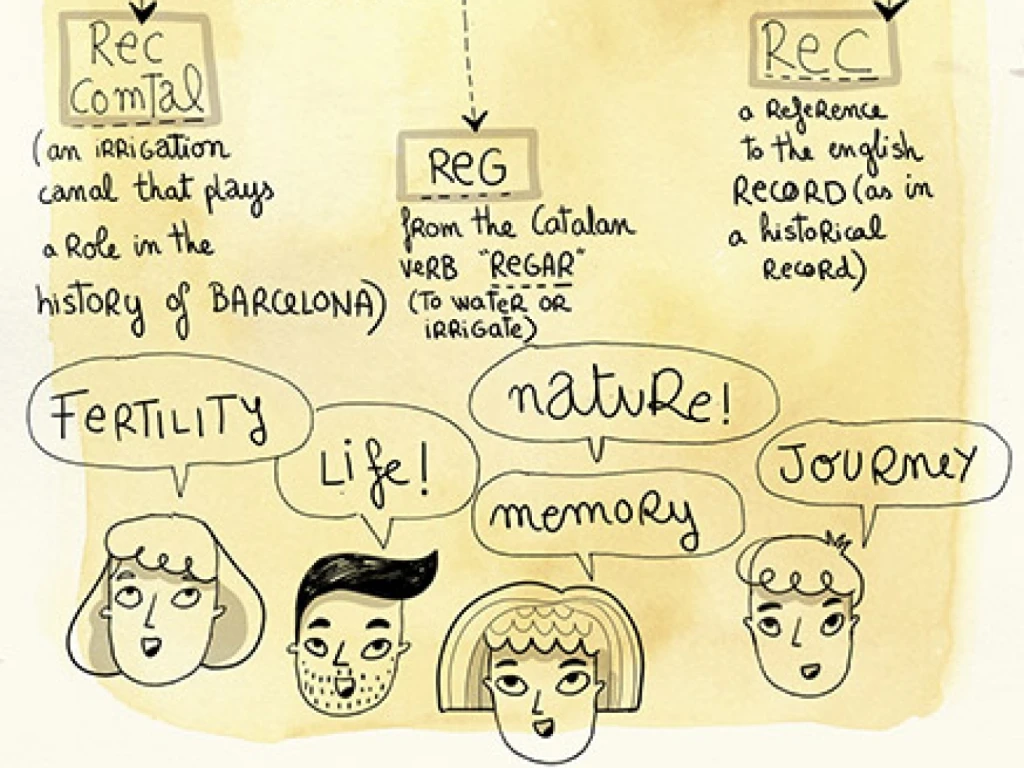 Rec
Comtal
(an irrigation
canal that plays
a role in the
history of BARCELONA)
ReG
from the Catalan
verb "ReGAR"
(To water or
irrigate)
Rec
a reference
to the english
RECORD (as in
a historical
record)
FeRTILITY
Life!
nature!
memory
JOURNEY